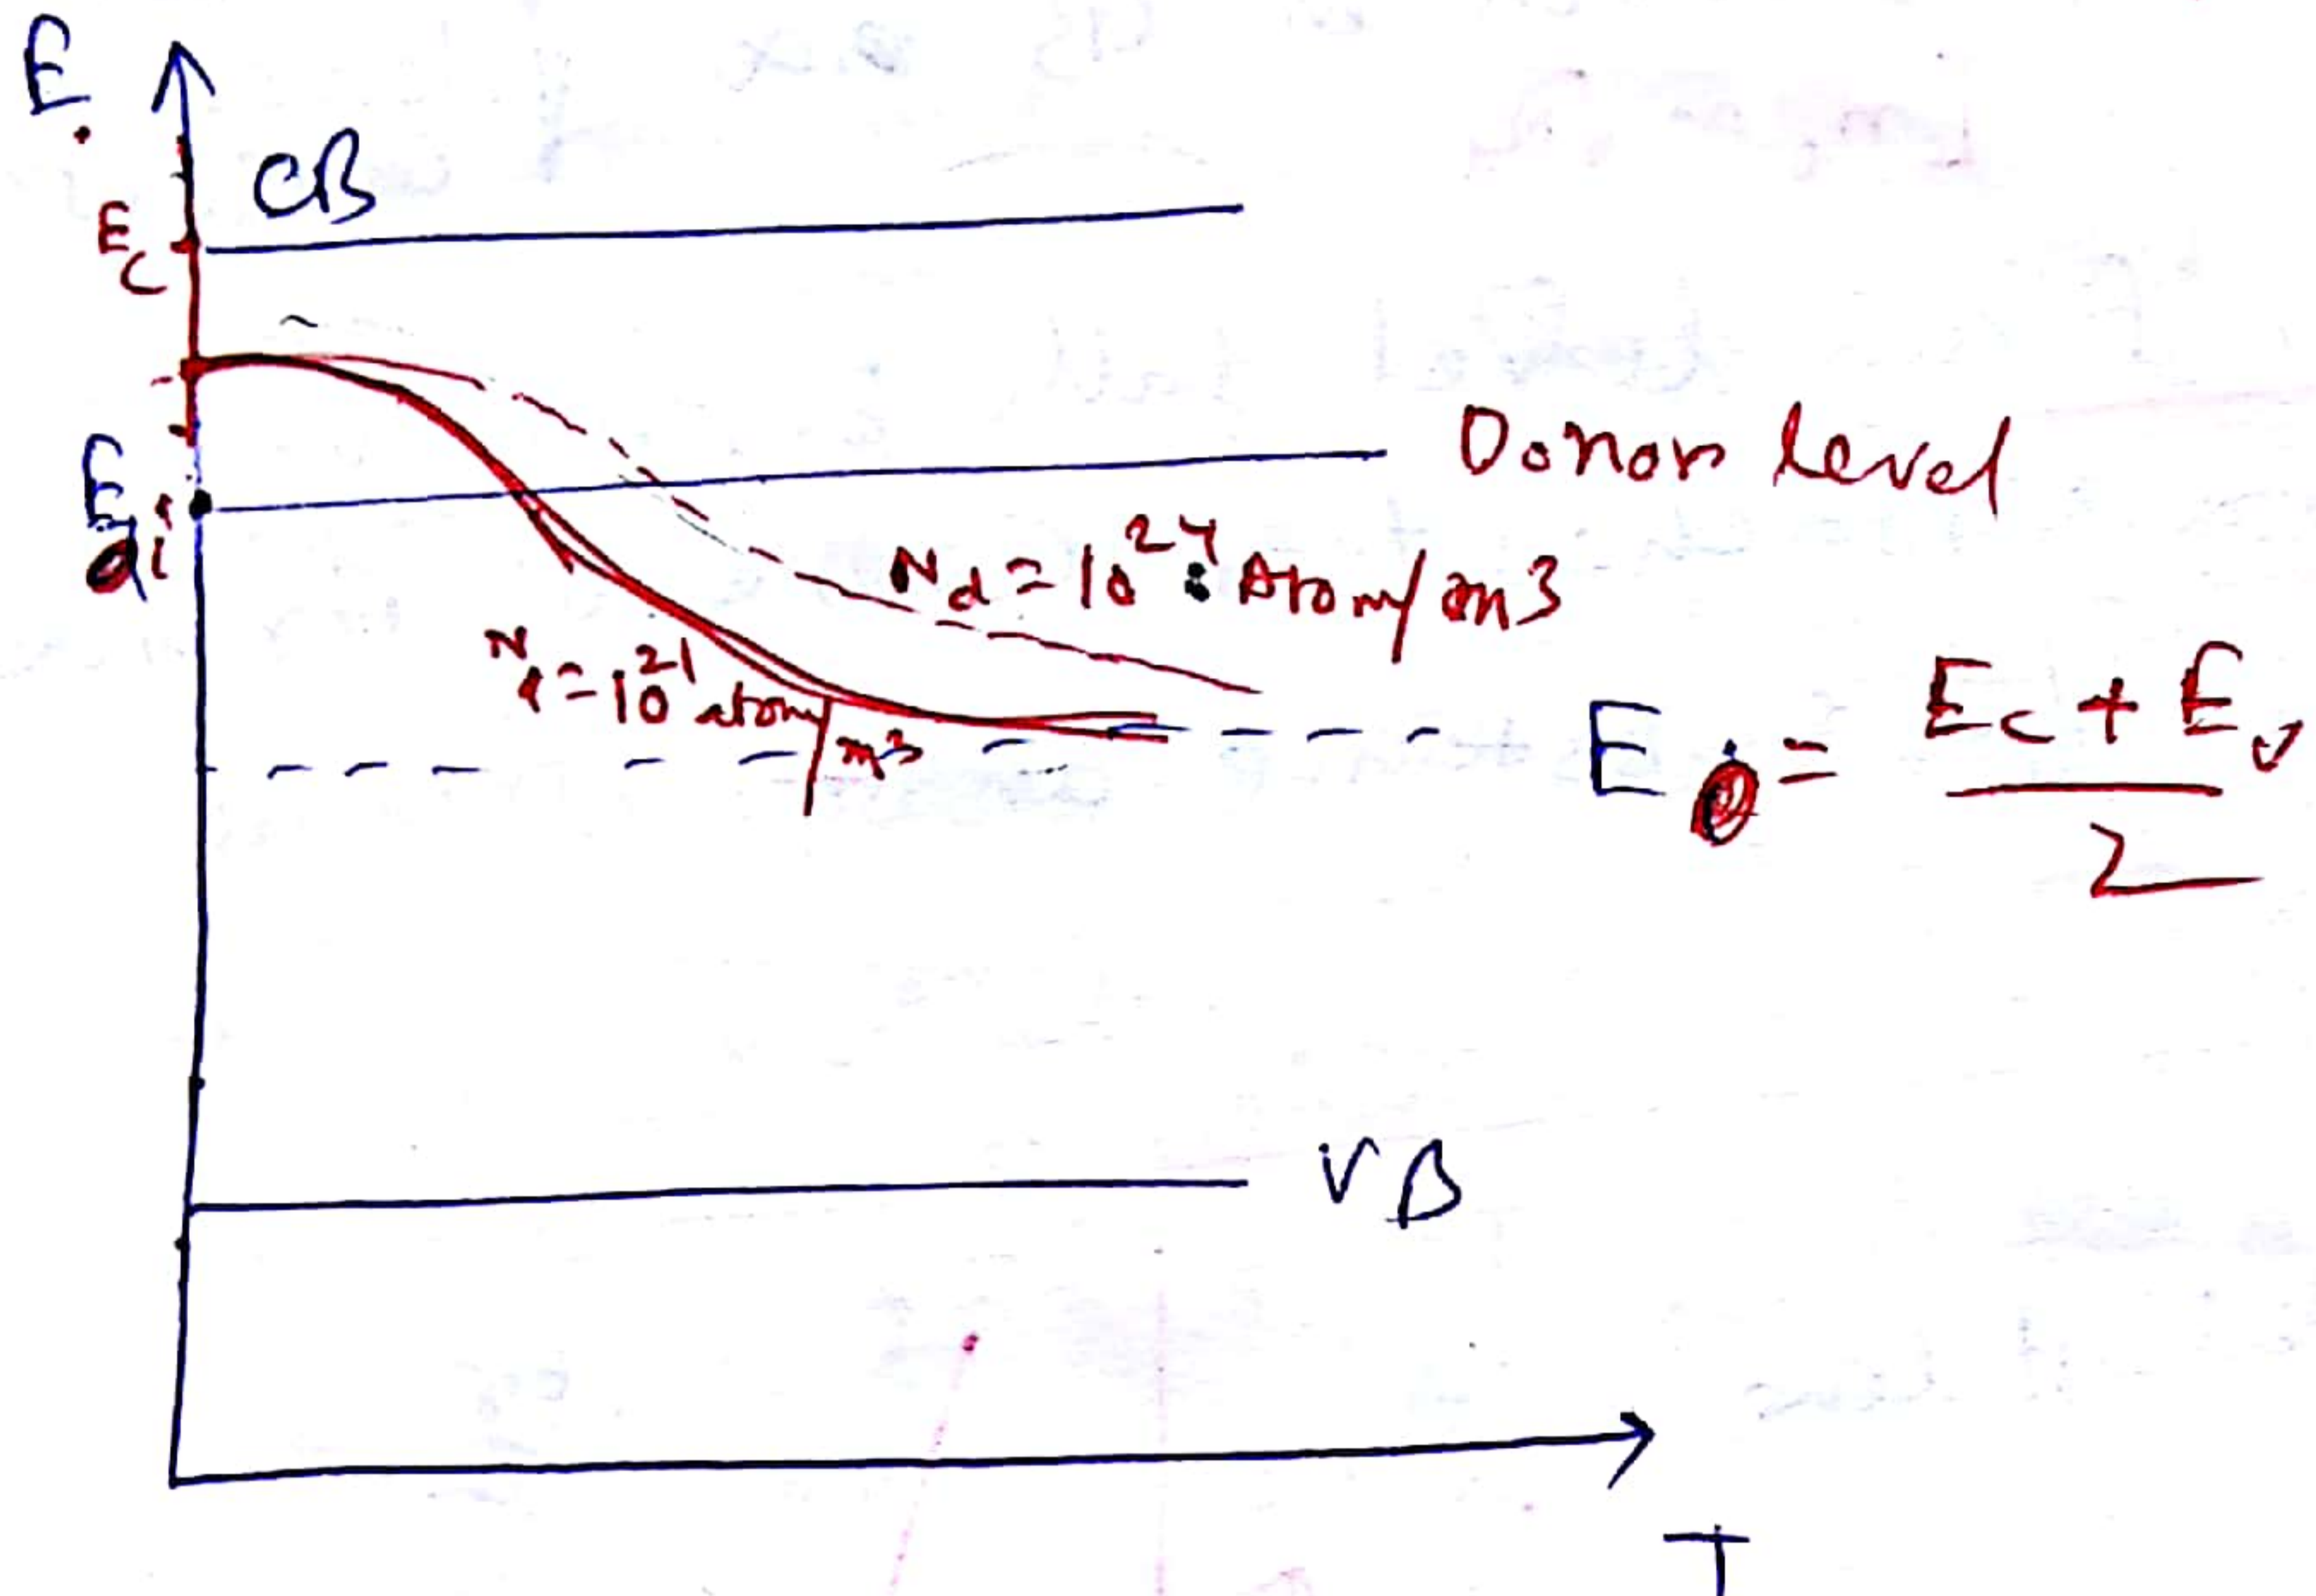 E
CB
E_C
E_di
Donor level
N_d = 10^24 Atom/m3
N_d = 10^21 atom/m^3
E_i = (E_C + E_v)/2
VB
T